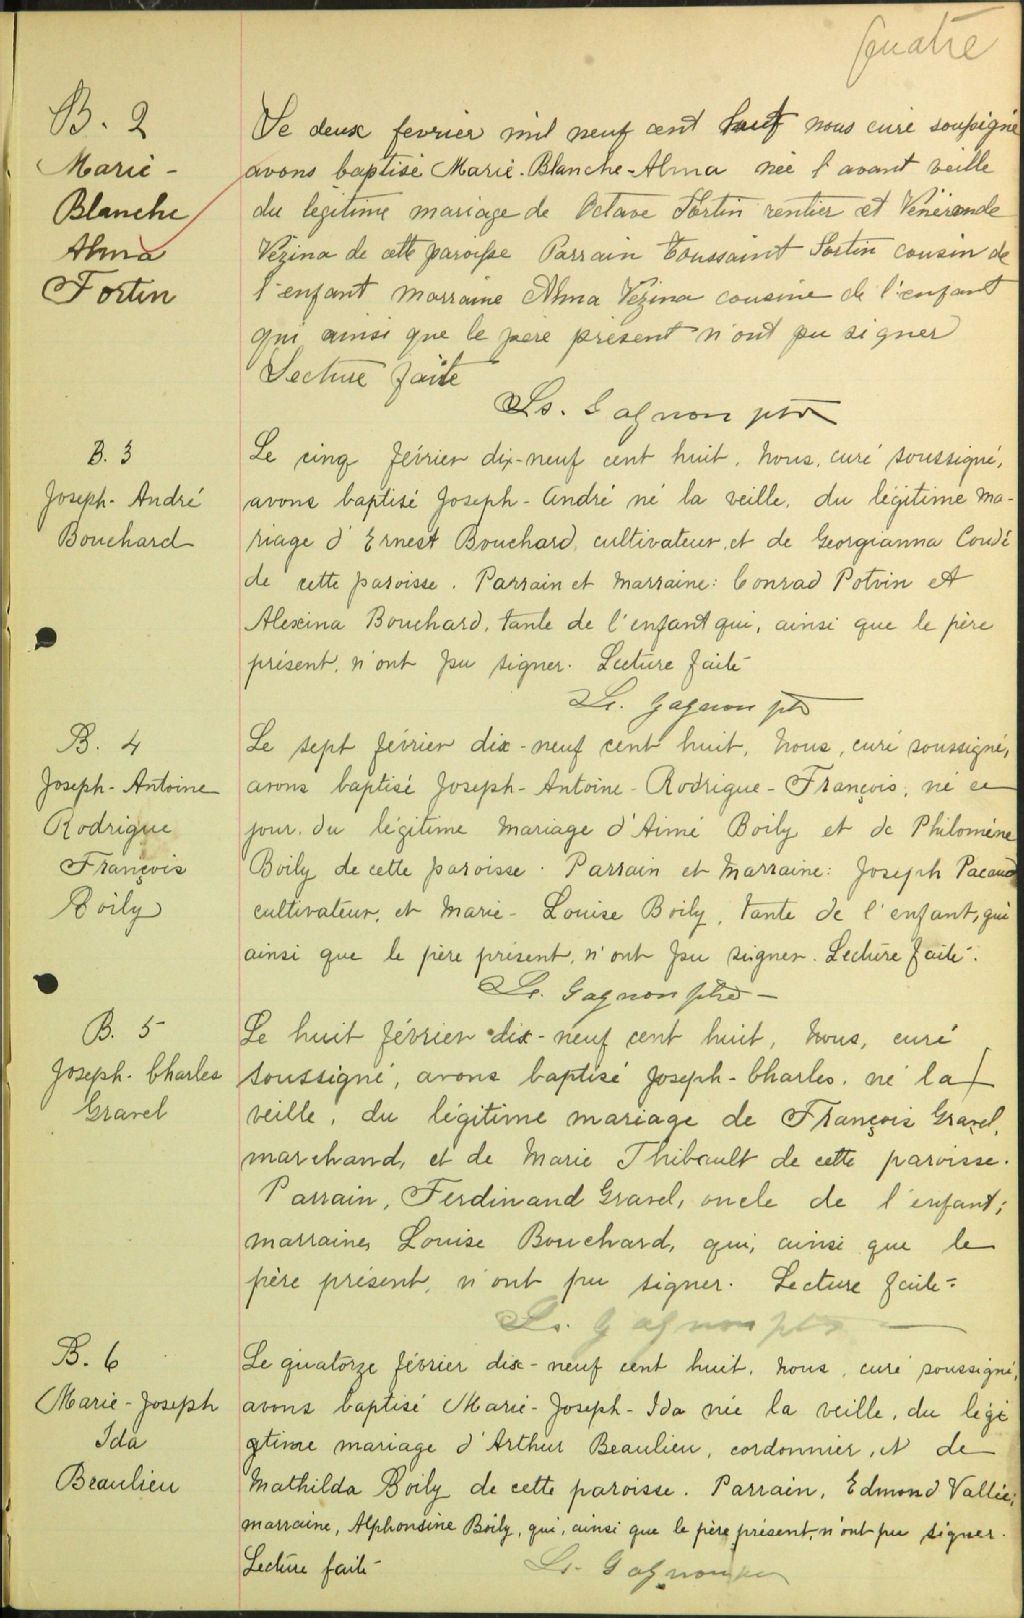 Quatre
B. 2
Marie-
Blanche
Alma
Fortin
Le deux fevrier mil neuf cent huit nous curé soussigné
avons baptisé Marie-Blanche-Alma née l'avant veille
du légitime mariage de Octave Fortin rentier et Vénérande
Vézina de cette paroisse Parrain Toussaint Fortin cousin de
l'enfant marraine Alma Vézina cousine de l'enfant
qui ainsi que le père présent n'ont pu signer
Lecture faite
Ls. Gagnon ptre
B. 3
Joseph-André
Bouchard
Le cinq février dix-neuf cent huit, nous, curé soussigné,
avons baptisé Joseph-André né la veille, du légitime ma-
riage d'Ernest Bouchard, cultivateur, et de Georgianna Coudé
de cette paroisse. Parrain et marraine: Conrad Potvin et
Alexina Bouchard, tante de l'enfant qui, ainsi que le père
présent, n'ont pu signer. Lecture faite
Ls. Gagnon ptre
B. 4
Joseph-Antoine
Rodrigue
François
Boily
Le sept février dix-neuf cent huit, nous, curé soussigné,
avons baptisé Joseph-Antoine-Rodrigue-François, né ce
jour, du légitime mariage d'Aimé Boily et de Philomène
Boily de cette paroisse. Parrain et marraine: Joseph Pacaud
cultivateur, et Marie-Louise Boily, tante de l'enfant, qui
ainsi que le père présent, n'ont pu signer. Lecture faite.
Ls. Gagnon ptre
B. 5
Joseph-Charles
Gravel
Le huit février dix-neuf cent huit, nous, curé
soussigné, avons baptisé Joseph-Charles, né la
veille, du légitime mariage de François Gravel,
marchand, et de Marie Thibault de cette paroisse.
Parrain, Ferdinand Gravel, oncle de l'enfant;
marraine, Louise Bouchard, qui, ainsi que le
père présent, n'ont pu signer. Lecture faite.
Ls. Gagnon ptre
B. 6
Marie-Joseph
Ida
Beaulieu
Le quatorze février dix-neuf cent huit, nous, curé soussigné,
avons baptisé Marie-Joseph-Ida née la veille, du légi
gtime mariage d'Arthur Beaulieu, cordonnier, et de
Mathilda Boily de cette paroisse. Parrain, Edmond Vallée;
marraine, Alphonsine Boily, qui, ainsi que le père présent, n'ont pu signer.
Lecture faite
Ls. Gagnon ptre